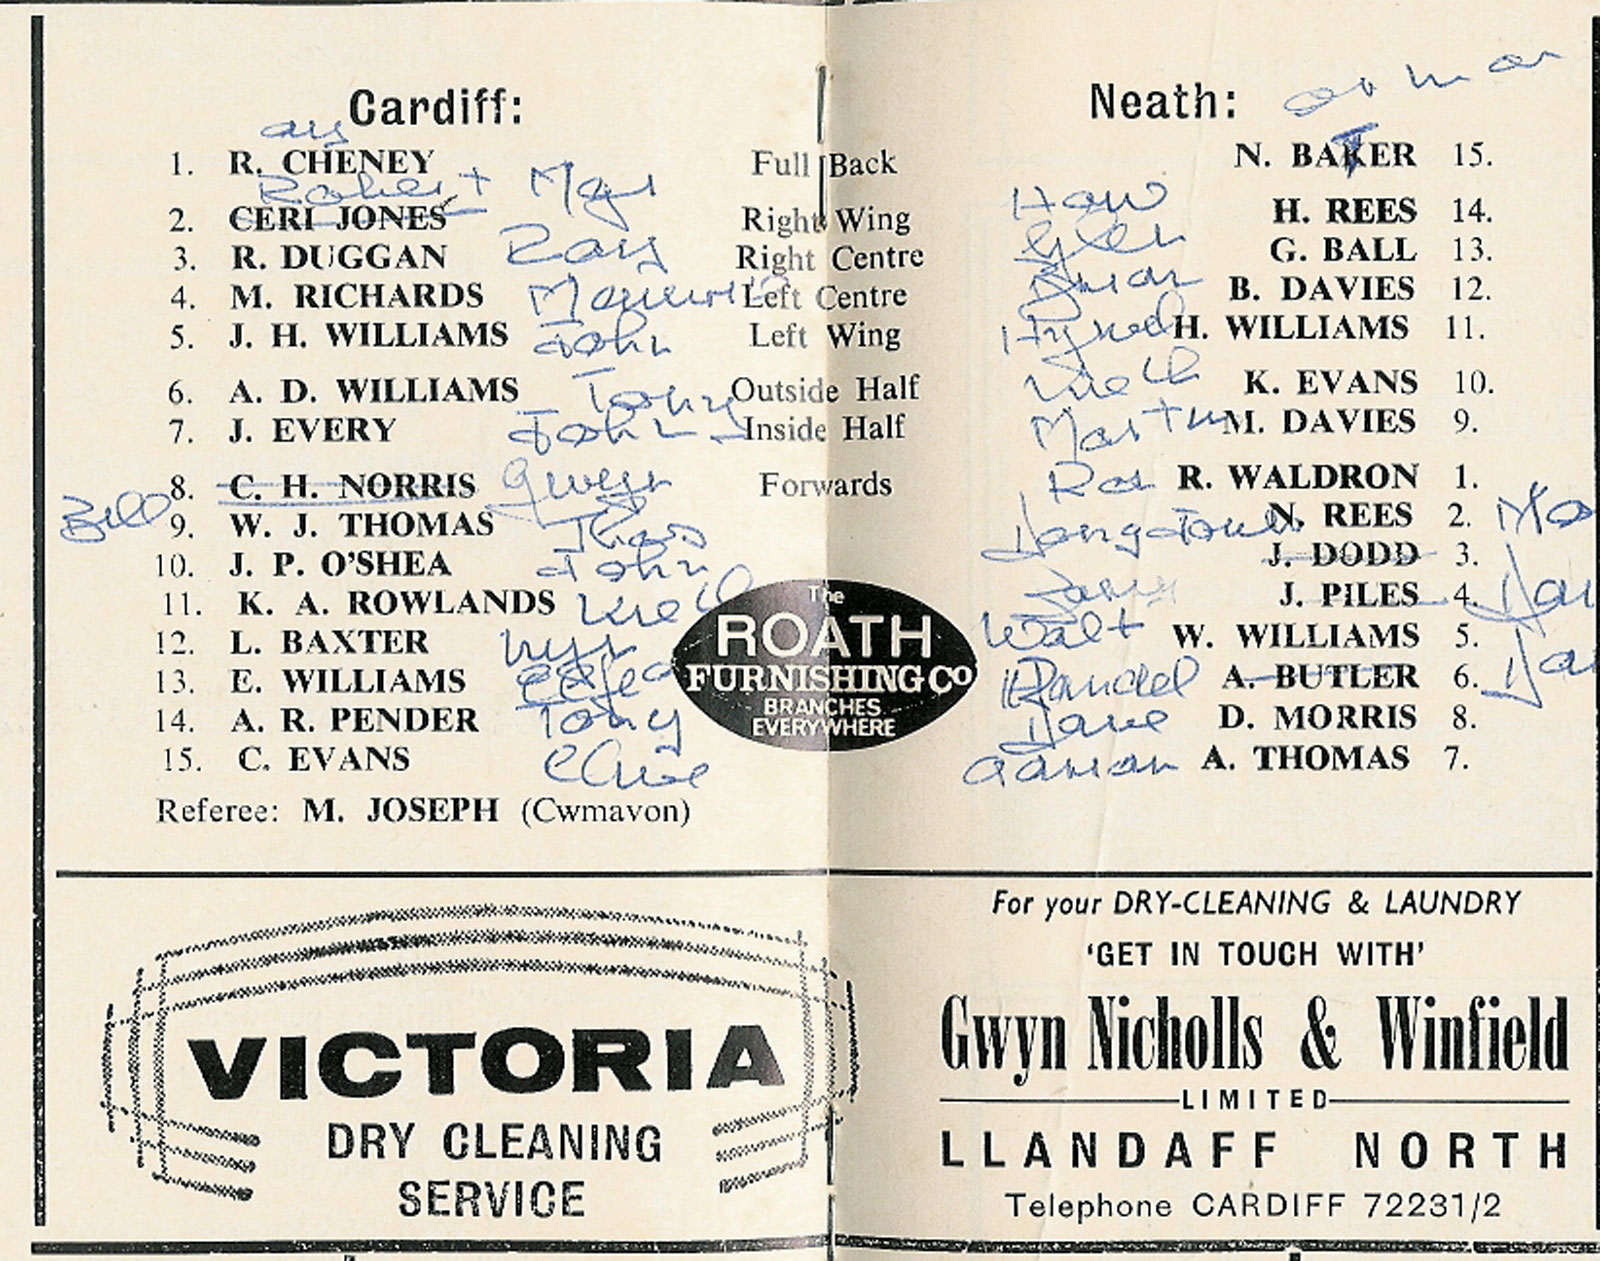 Cardiff:
1. R. CHENEY Full Back
Robert Mgr
2. CERI JONES Right Wing
3. R. DUGGAN Ray Right Centre
4. M. RICHARDS Left Centre
5. J. H. WILLIAMS John Left Wing
6. A. D. WILLIAMS Tony Outside Half
7. J. EVERY John Inside Half
8. C. H. NORRIS Forwards
Bill 9. W. J. THOMAS
10. J. P. O'SHEA John
11. K. A. ROWLANDS
12. L. BAXTER
13. E. WILLIAMS
14. A. R. PENDER Tony
15. C. EVANS Clive
Referee: M. JOSEPH (Cwmavon)
Neath:
N. BAKER 15.
How H. REES 14.
Glen G. BALL 13.
Brian B. DAVIES 12.
Hywel H. WILLIAMS 11.
K. EVANS 10.
Martin M. DAVIES 9.
Ron R. WALDRON 1.
N. REES 2.
J. DODD 3.
J. PILES 4.
Walt W. WILLIAMS 5.
A. BUTLER 6.
Dave D. MORRIS 8.
Adrian A. THOMAS 7.
The
ROATH
FURNISHING CO
BRANCHES
EVERYWHERE
VICTORIA
DRY CLEANING
SERVICE
For your DRY-CLEANING & LAUNDRY
'GET IN TOUCH WITH'
Gwyn Nicholls & Winfield
LIMITED
LLANDAFF NORTH
Telephone CARDIFF 72231/2